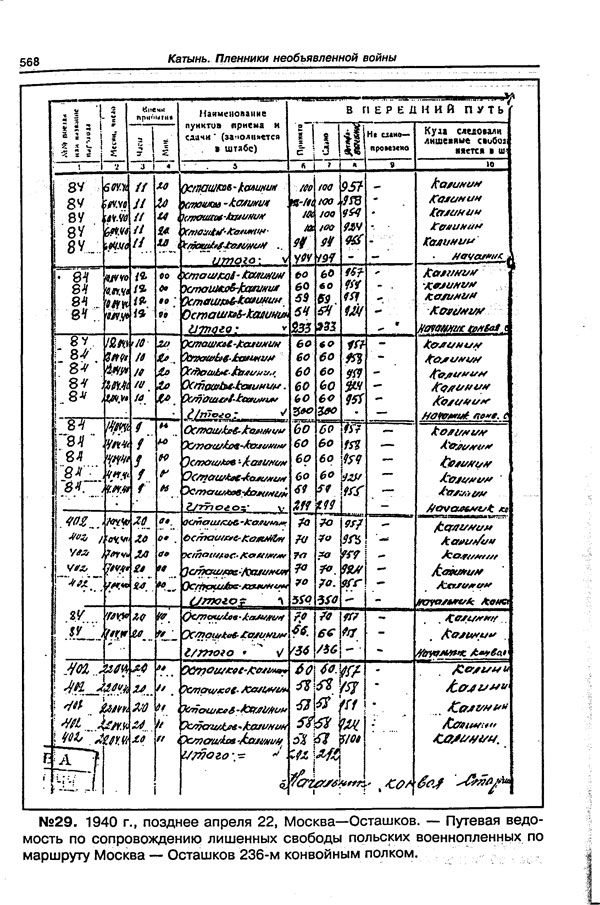 568
Катынь. Пленники необъявленной войны
Месяц, число
Время прибытия
Часы
Мин.
Наименование пунктов приема и сдачи (заполняется в штабе)
В ПЕРЕДНИЙ ПУТЬ
Принято
Сдано
Не сдано— провезено
Куда следовали
1 2 3 4 5 6 7 8 9 10
84 11 20 Осташков-Калинин 100 100 957 - Калинин
84 11 20 Осташков-Калинин 100 958 - Калинин
84 11 20 Осташков-Калинин 100 100 959 - Калинин
84 11 20 Осташков-Калинин 100 100 924 - Калинин
84 11 20 Осташков-Калинин 94 94 955 - Калинин
Итого: 494 494 - Начальник
84 12 00 Осташков-Калинин 60 60 957 - Калинин
84 12 00 Осташков-Калинин 60 60 958 - Калинин
84 12 00 Осташков-Калинин 59 59 959 - Калинин
84 12 00 Осташков-Калинин 54 54 924 - Калинин
Итого: 233 233 - Начальник конвоя
84 10 20 Осташков-Калинин 60 60 957 - Калинин
84 10 20 Осташков-Калинин 60 60 958 - Калинин
84 10 20 Осташков-Калинин 60 60 959 - Калинин
84 10 20 Осташков-Калинин 60 60 924 - Калинин
84 10 20 Осташков-Калинин 60 60 955 - Калинин
Итого: 300 300 - Начальник конв. с
84 9 00 Осташков-Калинин 60 60 957 - Калинин
84 9 Осташков-Калинин 60 60 958 - Калинин
84 9 Осташков-Калинин 60 60 959 - Калинин
84 9 Осташков-Калинин 60 60 924 - Калинин
84 9 Осташков-Калинин 59 59 955 - Калинин
Итого: 299 299 - Начальник
402 20 00 Осташков-Калинин 70 70 957 - Калинин
402 20 00 Осташков-Калинин 70 70 958 - Калинин
402 20 00 Осташков-Калинин 70 70 959 - Калинин
402 20 00 Осташков-Калинин 70 70 924 - Калинин
402 20 00 Осташков-Калинин 70 70 955 - Калинин
Итого 350 350 - Начальник конв
84 20 Осташков-Калинин 70 70 957 - Калинин
84 20 Осташков-Калинин 66 66 - Калинин
Итого 136 136 - Начальник конвоя
402 22.04.40 20 Осташков-Калинин 60 60 957 - Калини
402 22.04.40 20 Осташков-Калинин 58 58 958 - Калинин
402 22.04.40 20 Осташков-Калинин 58 58 959 - Калинин
402 22.04.40 20 Осташков-Калинин 58 58 924 - Калинин
402 22.04.40 20 Осташков-Калинин 58 58 - Калинин.
Итого = 292 292
Начальник конвоя
№29. 1940 г., позднее апреля 22, Москва—Осташков. — Путевая ведо-
мость по сопровождению лишенных свободы польских военнопленных по
маршруту Москва — Осташков 236-м конвойным полком.